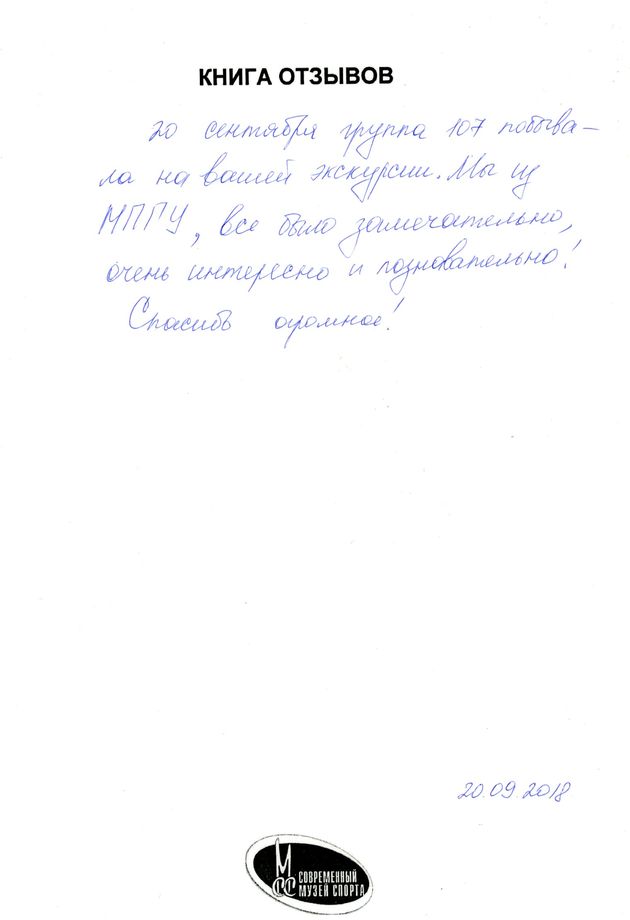 КНИГА ОТЗЫВОВ
20 сентября группа 107 побыва-
ла на вашей экскурсии. Мы из
МПГУ, все было замечательно,
очень интересно и позновательно!
Спасибо огромное!
20.09.2018
МСС СОВРЕМЕННЫЙ
МУЗЕЙ СПОРТА